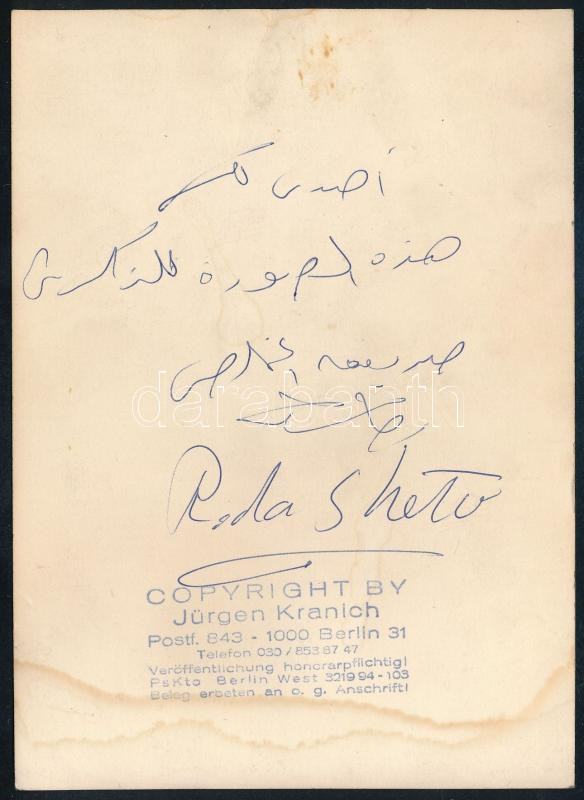 أهدى لكم
هذه الصورة للذكرى
صديقه المخلص
Roda Sheto
COPYRIGHT BY
Jürgen Kranich
Postf. 843 - 1000 Berlin 31
Telefon 030 / 853 87 47
Veröffentlichung honorarpflichtig!
PsKto Berlin West 3219 94 - 103
Beleg erbeten an o. g. Anschrift!
darabanth